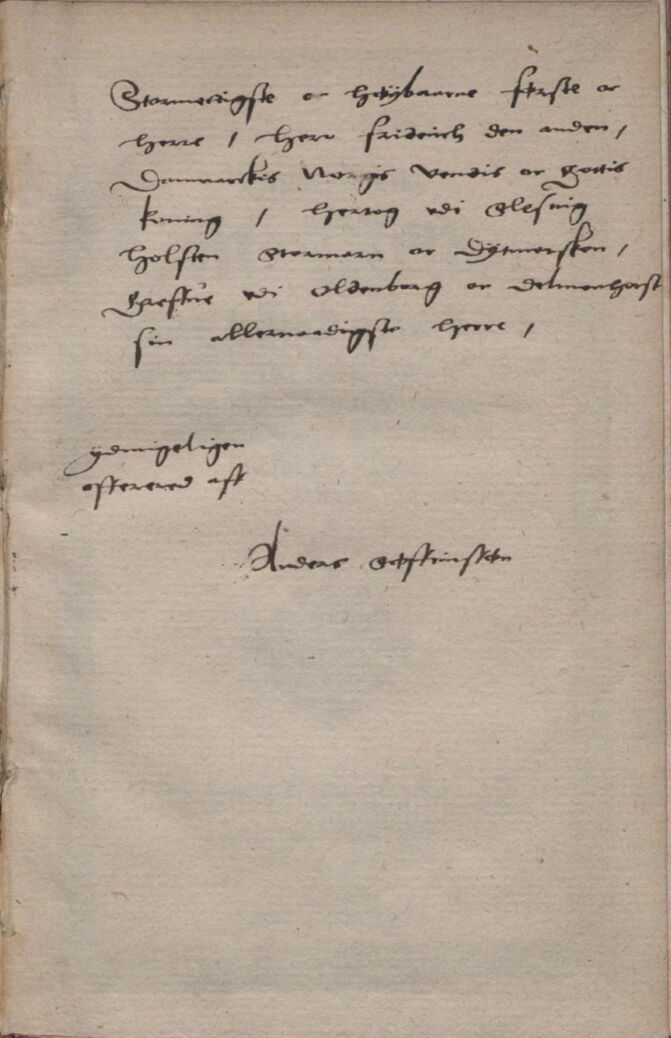 Stormectigste oc høybaarne første oc
herre / Herr friderich den anden /
Danmarckis Norgis Vendis oc gottis
koning / Hertog vdi Slesuig
Holsten Stormarn oc Dytmersken /
greffue vdi Oldenborg oc Delmenhorst
sin allernaadigste herre /
ydmygeligen
offerered aff
Anders